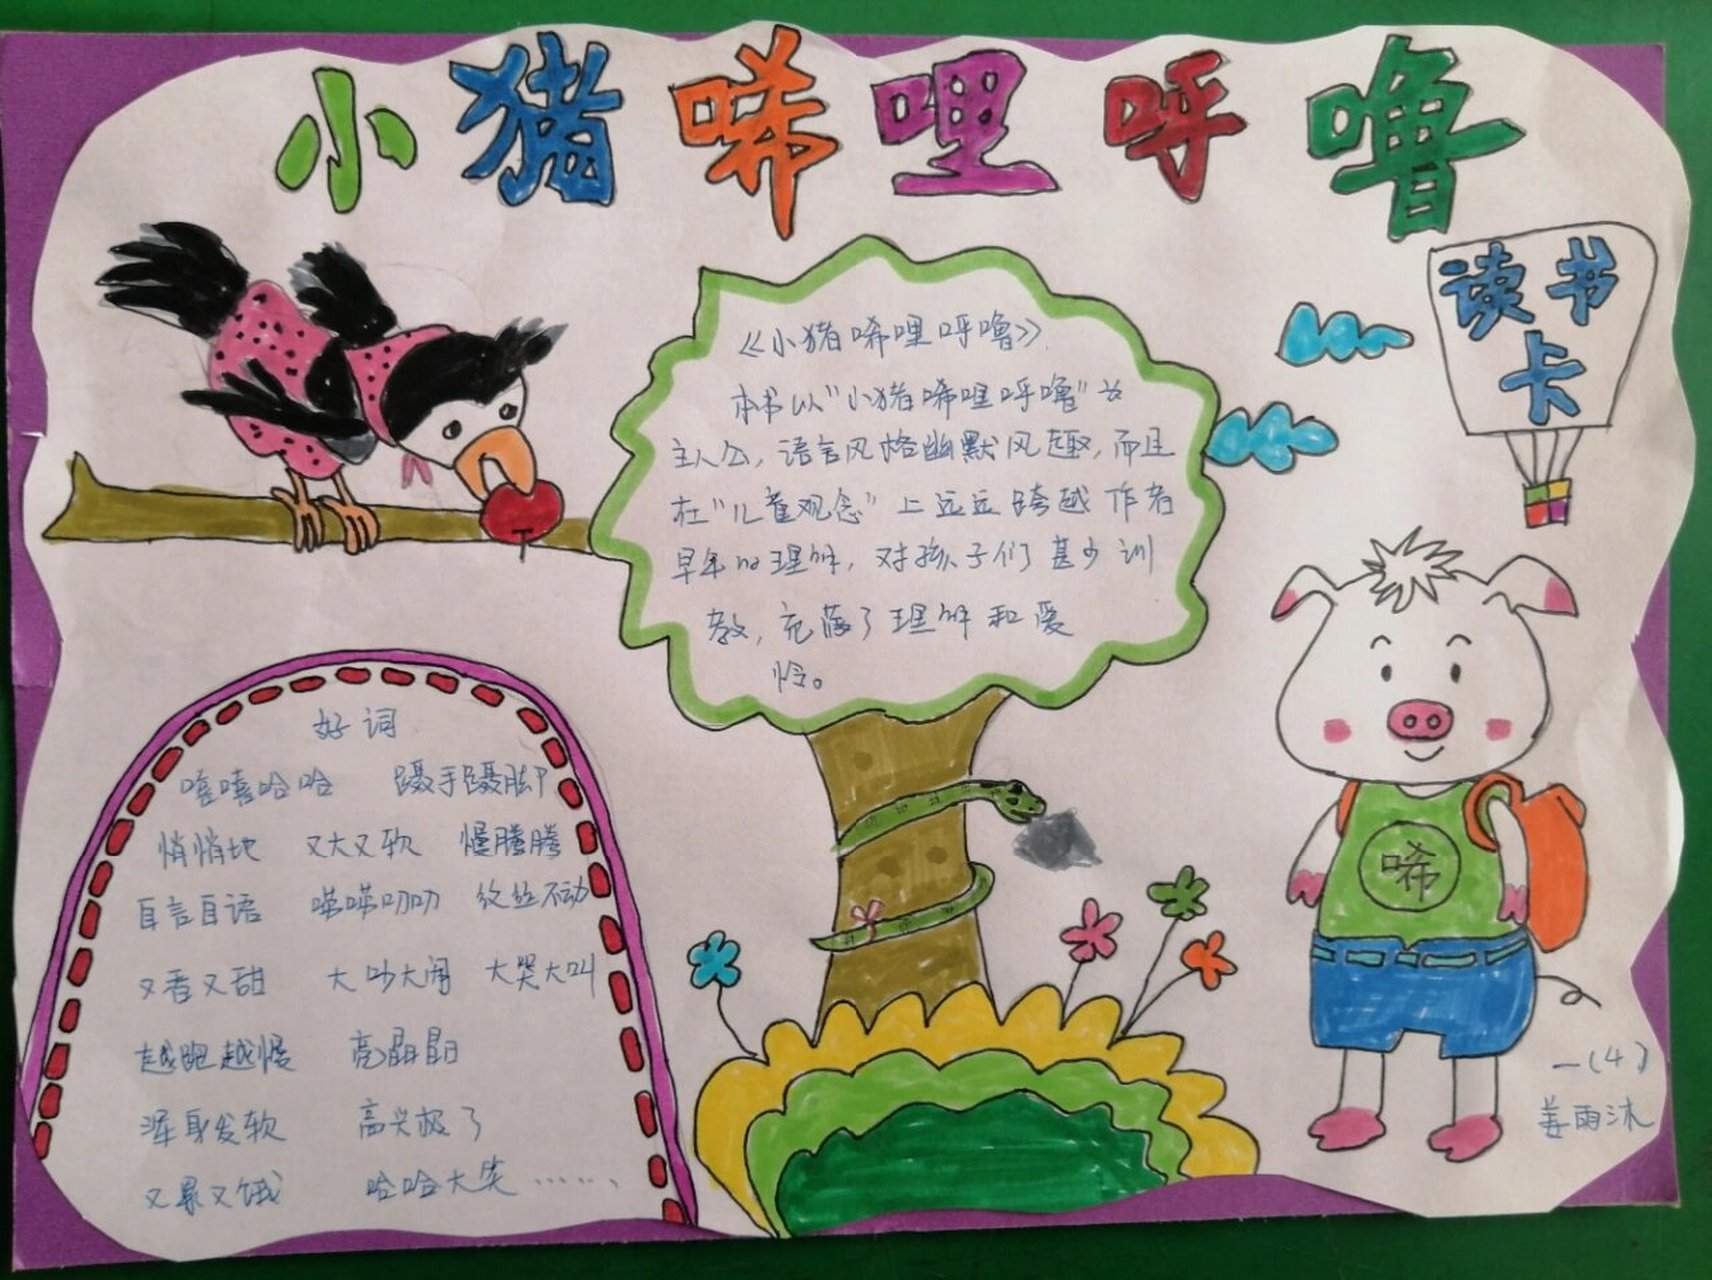 小猪唏哩呼噜
读书
卡
《小猪唏哩呼噜》
本书以“小猪唏哩呼噜”为
主人公，语言风格幽默风趣，而且
在“儿童观念”上远远跨越作者
早年的理解，对孩子们甚少训
教，充满了理解和爱
怜。
好词
嘻嘻哈哈 蹑手蹑脚
悄悄地 又大又软 慢腾腾
自言自语 唠唠叨叨 纹丝不动
又香又甜 大吵大闹 大哭大叫
越跑越慢 亮晶晶
浑身发软 高兴极了
又累又饿 哈哈大笑……
唏
一(4)
姜雨沐